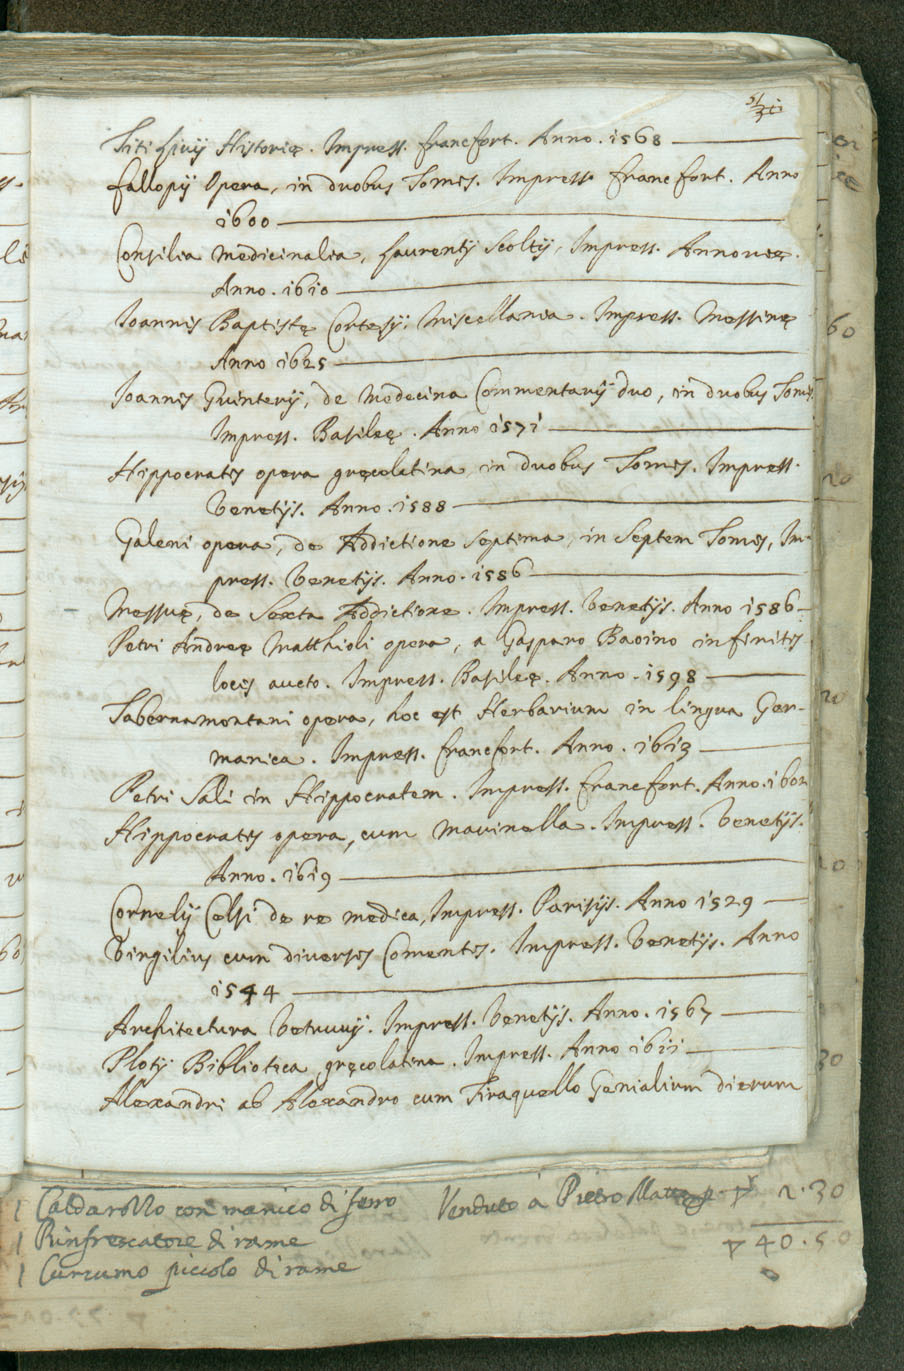 51
Titi Livij Historię. Impress. francfort. Anno. 1568
fallopij Opera, in duobus Tomis. Impress. francfort. Anno
1600
Consilia Medicinalia, Laurentij Scoltij, Impress. Annonię.
Anno. 1610
Joannis Baptistę Cortesij Miscellania. Impress. Messinę
Anno 1625
Joannis Guinterij, de Medecina Commentarij duo, in duobus Tomis
Impress. Basileę. Anno 1571
Hippocratis opera gręcolatina in duobus Tomis. Impress.
Venetijs. Anno. 1588
Galeni opera, de Addictione septima, in Septem Tomis, Im-
press. Venetijs. Anno. 1586
Messuę, de Sexta Addictione. Impress. Venetijs. Anno 1586
Petri Andreę Matthioli opera, a Gasparo Baoino infinitis
locis aucto. Impress. Basileę. Anno. 1598
Tabernamontani opera, hoc est Herbarium in lingua Ger-
manica. Impress. francfort. Anno. 1613
Petri Sali in Hippocratem. Impress. francfort. Anno. 1602
Hippocratis opera, cum Marinella. Impress. Venetijs.
Anno. 1619
Cornelij Celsi de re medica, Impress. Parisijs. Anno 1529
Virgilius cum diversis Comentis. Impress. Venetijs. Anno
1544
Architectura Vetruvij. Impress. Venetijs. Anno. 1567
Plotij Biblioteca gręcolatina. Impress. Anno 1611
Alexandri ab Alexandro cum Tiraquello Genialium dierum
60
20
20
20
30
1 Caldarozzo con manico di ferro Venduto à Pietro 2.30
1 Rinfrescatore di rame 40.50
1 Cuzzumo piccolo di rame